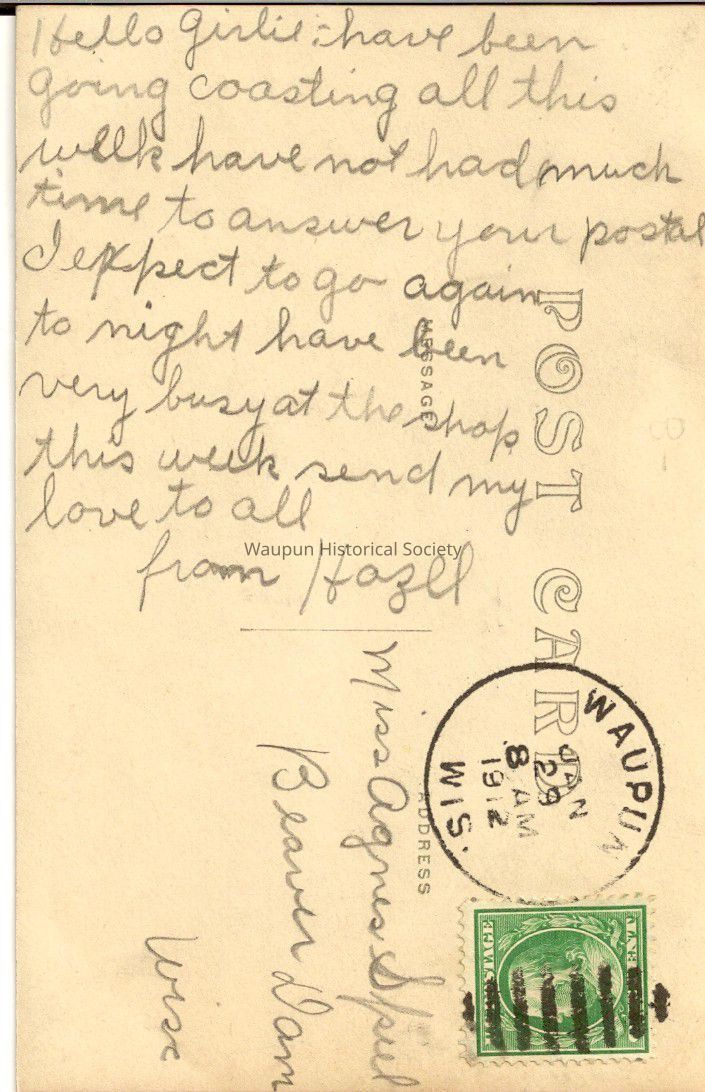 Hello Girlie: have been
going coasting all this
week have not had much
time to answer your postal
I expect to go again
to night have been
very busy at the shop
this week send my
love to all
from Hazel
Waupun Historical Society
POST CARD
MESSAGE
ADDRESS
Miss Agnes Spiel
Beaver Dam
Wisc
WAUPUN
JAN
29
8 AM
1912
WIS.